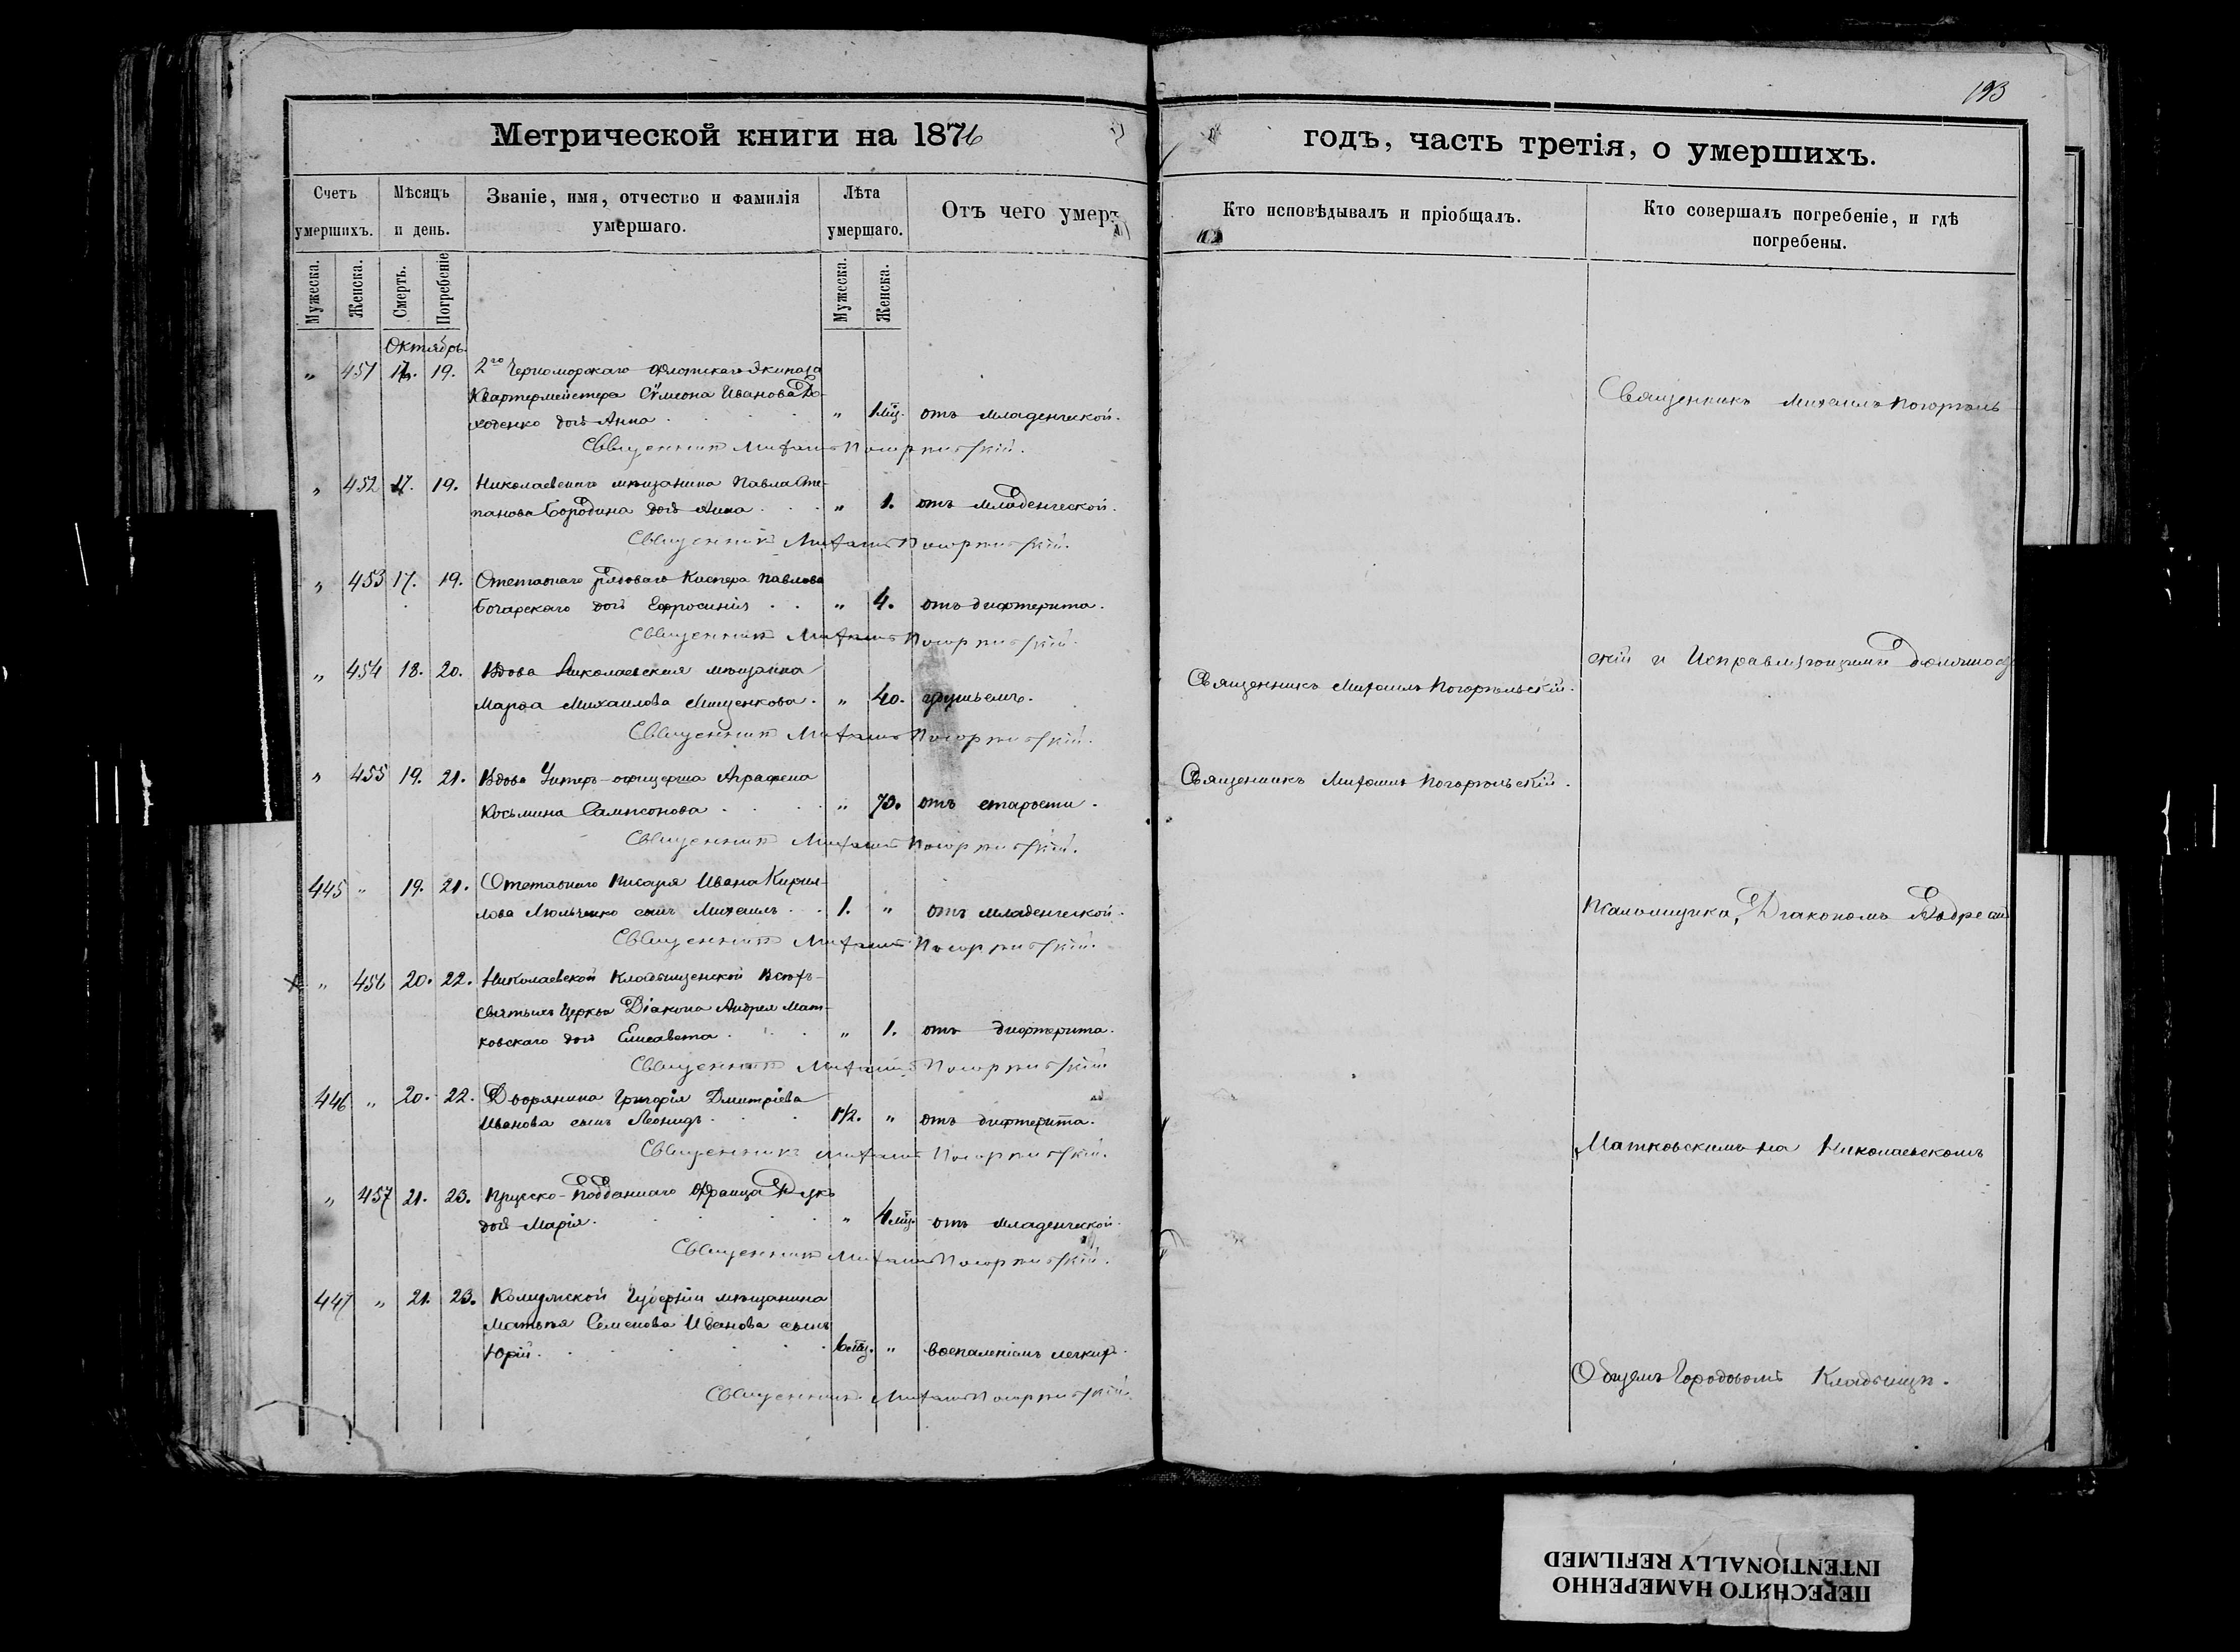 193
Метрической книги на 1876
годъ, часть третія, о умершихъ.
Счетъ умершихъ.
Мѣсяцъ и день.
Званіе, имя, отчество и фамилія умершаго.
Лѣта умершаго.
Отъ чего умеръ
Кто исповѣдывалъ и пріобщалъ.
Кто совершалъ погребеніе, и гдѣ погребены.
Мужеска. Женска. Смерть. Погребеніе Мужеска. Женска.
Октябрь
„ 451 17. 19. 2го Черноморскаго Флотскаго Экипажа
Квартермейстера Сѵмеона Иванова
ходенко дочь Анна „ 1 мц. отъ младенческой.
Священникъ Михаилъ Погорѣльскій.
„ 452 17. 19. Николаевскаго мѣщанина Павла Сте-
панова Бородина дочь Анна „ 1. отъ младенческой.
Священникъ Михаилъ Погорѣльскій.
„ 453 17. 19. Отставнаго рядоваго Каспера Павлова
Бочарскаго дочь Ефросинія „ 4. отъ дифтерита.
Священникъ Михаилъ Погорѣльскій.
„ 454 18. 20. Вдова Николаевская мѣщанка
Марфа Михаилова Мищенкова. „ 40.
Священникъ Михаилъ Погорѣльскій.
„ 455 19. 21. Вдова Унтеръ-офицерша Аграфена
Косьмина Сампсонова „ 70. отъ старости.
Священникъ Михаилъ Погорѣльскій.
445 „ 19. 21. Отставнаго Писаря Ивана Кирил-
лова Люльченко сынъ Михаилъ 1. „ отъ младенческой.
Священникъ Михаилъ Погорѣльскій.
„ 456 20. 22. Николаевской Кладбищенской Всѣхъ-
святыхъ Церкви Діакона Андрея Мат-
ковскаго дочь Елисавета „ 1. отъ дифтерита.
Священникъ Михаилъ Погорѣльскій
446 „ 20. 22. Дворянина Григорія Димитріева
Иванова сынъ Леонидъ 1½. „ отъ дифтерита.
Священникъ Михаилъ Погорѣльскій.
„ 457 21. 23. Прусско-Подданнаго Франца
дочь Марія. „ 4 мц. отъ младенческой.
Священникъ Михаилъ Погорѣльскій.
447 „ 21. 23. Губерніи мѣщанина
Матвѣя Семенова Иванова сынъ
Юрій. 6 мц. „ воспаленіемъ легкихъ.
Священникъ Михаилъ Погорѣльскій.
Священникъ Михаилъ Погорѣльскій.
Священникъ Михаилъ Погорѣльскій.
Священникъ Михаилъ Погорѣль-
скій и Исправляющимъ должность
Псаломщика, Діакономъ Андреемъ
Матковскимъ на Николаевскомъ
Общемъ Городовомъ Кладбищѣ.
ПЕРЕСНЯТО НАМЕРЕННО
INTENTIONALLY REFILMED